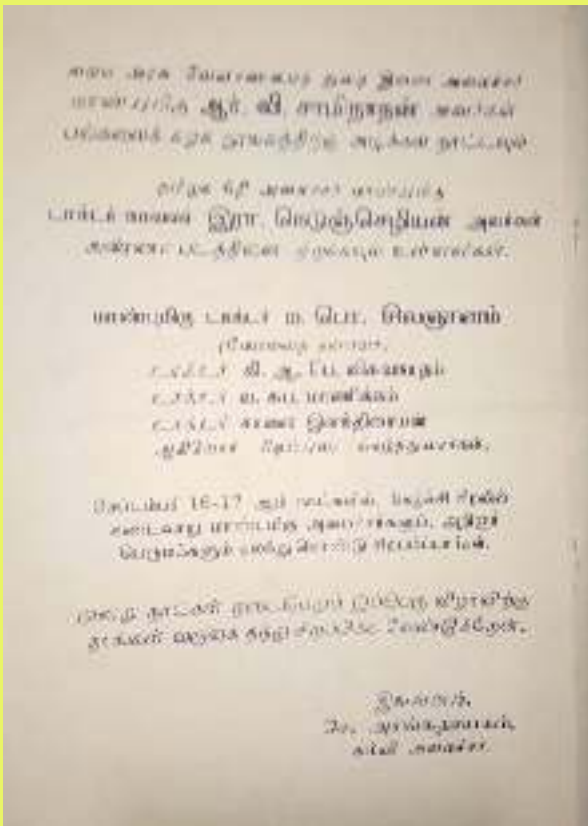 மைய அரசு வேளாண்மைத் துறை இணை அமைச்சர்
மாண்புமிகு ஆர். வி. சாமிநாதன் அவர்கள்
பல்கலைக் கழக நூலகத்திற்கு அடிக்கல் நாட்டவும்
தமிழக நிதி அமைச்சர் மாண்புமிகு
டாக்டர் நாவலர் இரா. நெடுஞ்செழியன் அவர்கள்
அண்ணா படத்தினை திறக்கவும் உள்ளார்கள்.
மாண்புமிகு டாக்டர் ம. பொ. சிவஞானம்
டாக்டர் வி.
டாக்டர் வ. சுப. மாணிக்கம்
டாக்டர் சாலை இளந்திரையன்
ஆகியோர் வாழ்த்துவார்கள்.
செப்டம்பர் 16-17 ஆம் நாட்களில்,
மாண்புமிகு அமைச்சர்களும், ஆன்றோர்
பெருமக்களும் கலந்து கொண்டு சிறப்பிப்பார்கள்.
மூன்று நாட்கள் நடைபெறும் இவ்விழாவிற்கு
தாங்கள் வருகை தந்து சிறப்பிக்க வேண்டுகிறேன்.
இங்ஙனம்,
செ. அரங்கநாயகம்,
கல்வி அமைச்சர்.